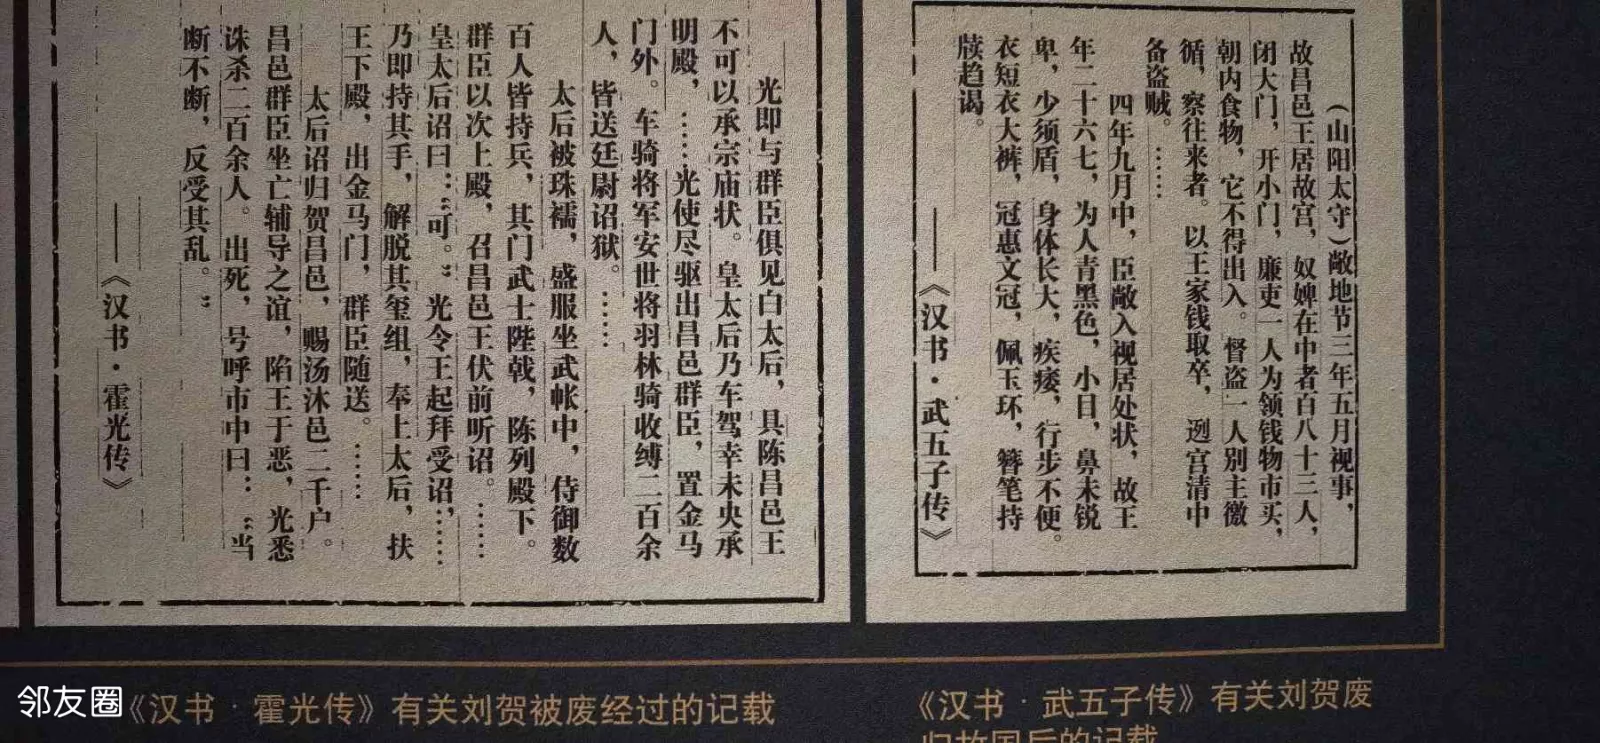 （山阳太守）敞地节三年五月视事，
故昌邑王居故宫，奴婢在中者百八十三人，
闭大门，开小门，廉吏一人为领钱物市买，
朝内食物，它不得出入。督盗一人别主徼
循，察往来者。以王家钱取卒，迾宫清中
备盗贼。……
四年九月中，臣敞入视居处状，故王
年二十六七，为人青黑色，小目，鼻末锐
卑，少须眉，身体长大，疾痿，行步不便。
衣短衣大裤，冠惠文冠，佩玉环，簪笔持
牍趋谒。
——《汉书·武五子传》
光即与群臣俱见白太后，具陈昌邑王
不可以承宗庙状。皇太后乃车驾幸未央承
明殿，……光使尽驱出昌邑群臣，置金马
门外。车骑将军安世将羽林骑收缚二百余
人，皆送廷尉诏狱。……
太后被珠襦，盛服坐武帐中，侍御数
百人皆持兵，其门武士陛戟，陈列殿下。
群臣以次上殿，召昌邑王伏前听诏。……
皇太后诏曰：“可。”光令王起拜受诏，……
乃即持其手，解脱其玺组，奉上太后，扶
王下殿，出金马门，群臣随送。……
太后诏归贺昌邑，赐汤沐邑二千户。
昌邑群臣坐亡辅导之谊，陷王于恶，光悉
诛杀二百余人。出死，号呼市中曰：“当
断不断，反受其乱。”
——《汉书·霍光传》
《汉书·霍光传》有关刘贺被废经过的记载
《汉书·武五子传》有关刘贺废
归故国后的记载
邻友圈